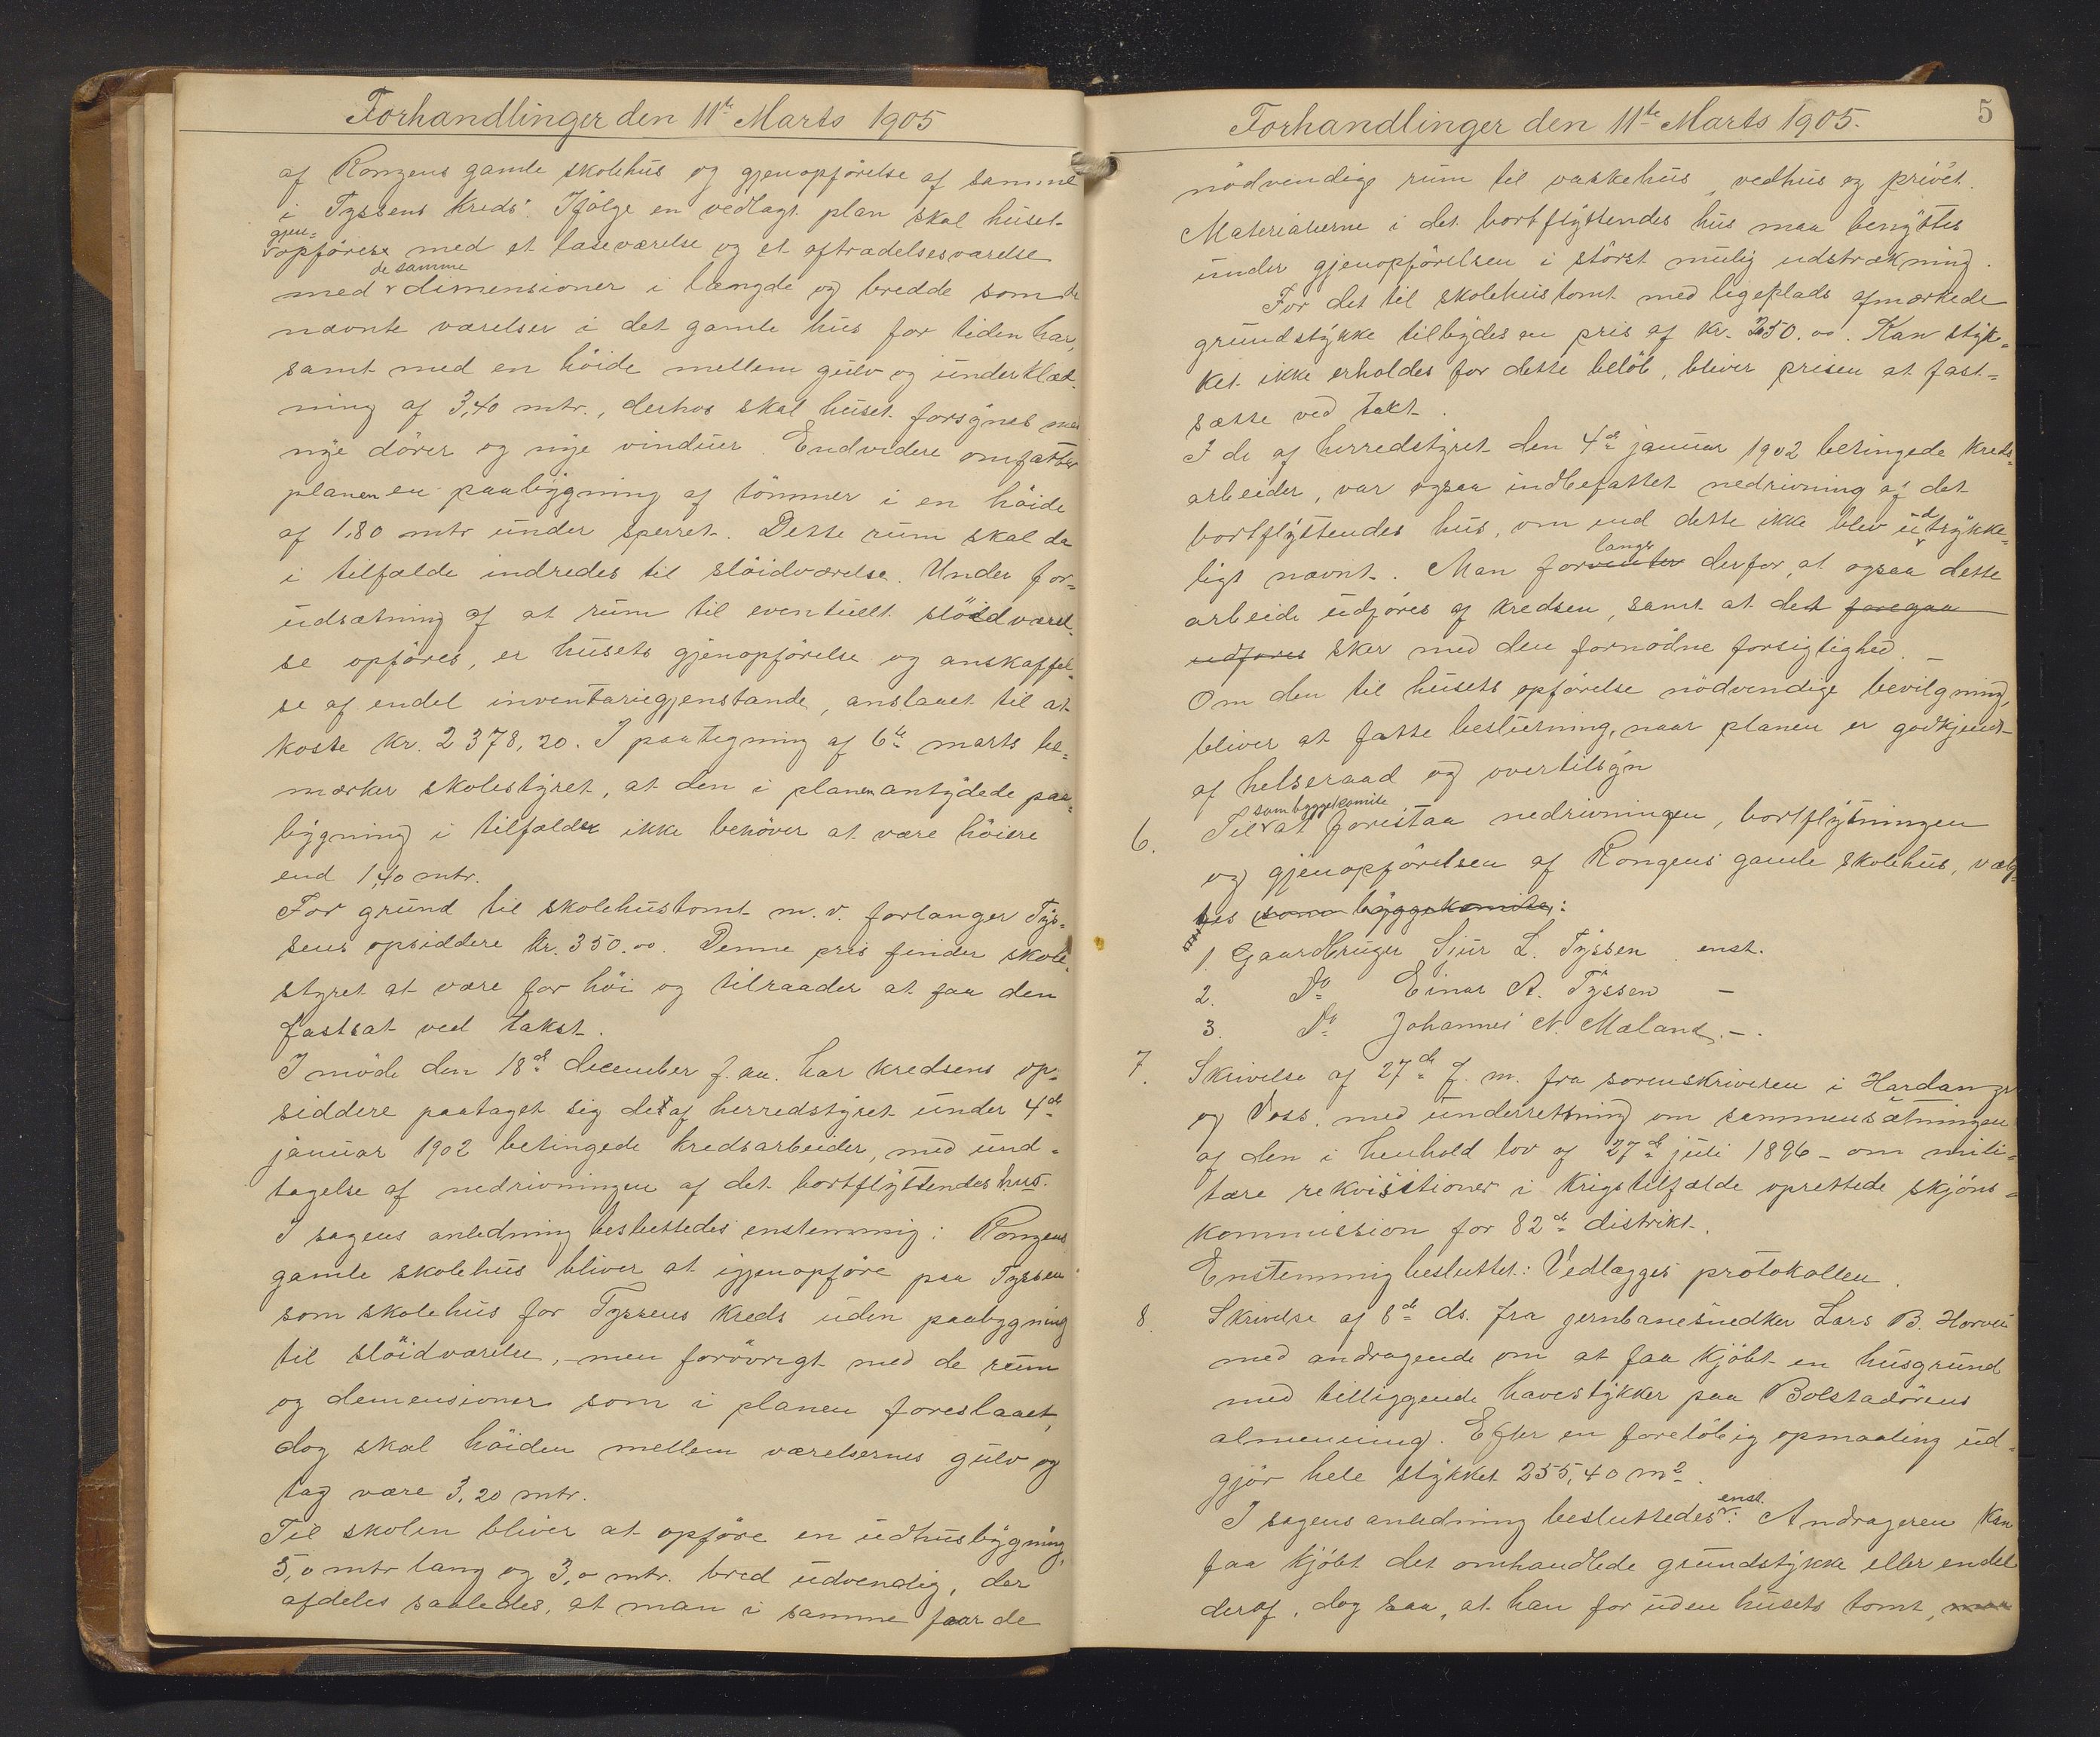 Forhandlinger den 11te Marts 1905
af Rongens gamle skolehus og gjenopförelse af samme
i Tyssens Kreds". Ifölge en vedlagt plan skal huset
gjen=
opföres med et læseværelse og et aftrædelsesværelse
de samme
med dimensioner i længde og bredde som de
nævnte værelser i det gamle hus for tiden har,
samt med en höide mellem gulv og underklæd-
ning af 3,40 mtr., derhos skal huset forsynes med
nye dörer og nye vinduer. Endvidere omfatter
planen en paabygning af tömmer i en höide
af 1,80 mtr under sperret. Dette rum skal da
i tilfælde indredes til slöidværelse. Under for=
udsætning af at rum til eventuelt slöidværel=
se opföres, er husets gjenopförelse og anskaffel=
se af endel inventariegjenstande, anslaaet til at
koste kr. 2378,20. I paategning af 6te marts be=
mærker skolestyret, at den i planen antydede paa=
bygning i tilfælde ikke behöver at være höiere
end 1,40 mtr.
For grund til skolehustomt m. v. forlanger Tys=
sens opsiddere kr. 350.00. Denne pris finder skole=
styret at være for höi og tilraader at faa den
fastsat ved takst.
I möde den 18de december f. aa. har kredsens op=
siddere paataget sig det af herredstyret under 4de
januar 1902 betingede kredsarbeider, med und=
tagelse af nedrivningen af det bortflyttendes hus.
I sagens anledning besluttedes enstemmig: Rongens
gamle skolehus bliver at igjenopföre paa Tyssen
som skolehus for Tyssens kreds uden paabygning
til slöidværelse, men forövrigt med de rum
og demensioner som i planen foreslaaet,
dog skal höiden mellem værelsernes gulv og
tag være 3,20 mtr.
Til skolen bliver at opföre en udhusbygning,
5,0 mtr lang og 3,0 mtr. bred udvendig, der
afdeles saaledes, at man i samme faar de
Forhandlinger den 11te Marts 1905.
5
nödvendige rum til vaskehus, vedhus og privet.
Materialierne i det bortflyttendes hus maa benyttes
under gjenopförelsen i störst mulig udstrækning.
For det til skolehustomt med legeplads afmærkede
grundstykke tilbydes en pris af kr. 250.00. Kan styk=
ket ikke erholdes for dette belöb, bliver prisen at fast=
sætte ved takt.
I de af herredstyret den 4de januar 1902 betingede kreds=
arbeider, var ogsaa indbefattet nedrivning af det
bortflyttendes hus, om end dette ikke blev udtrykke=
langer
ligt nævnt. Man forventer derfor, at ogsaa dette
arbeide udföres af kredsen, samt at det foregaa
udföres sker med den fornödne forsigtighed.
Om den til husets opförelse nödvendige bevilgning,
bliver at fatte beslutning, naar planen er godkjendt
af helseraad og overtilsyn
som byggekomite
6. Til at forestaa nedrivningen, bortflytningen
og gjenopförelsen af Rongens gamle skolehus, valg=
tes (som byggekomite):
1. Gaardbruger Sjur L. Tyssen enst.
2. Do Einar A. Tyssen —
3. Do Johannes N. Mæland. —.
7. Skrivelse af 27de f. m. fra sorenskriveren i Hardanger
og Voss, med underretning om sammensætningen
af den i henhold lov af 27de juli 1896 - om mili=
tære rekvisitioner i krigstilfælde oprettede skjöns=
kommission for 82de distrikt.
Enstemmig besluttet: Vedlægges protokollen.
8. Skrivelse af 8de ds. fra jernbanesnedker Lars B. Horvei
med andragende om at faa kjöbt en husgrund
med tilliggende havestykker paa Bolstadörens
almenning. Efter en forelöbig opmaaling ud=
gjör hele stykket 255,40 m2.
enst.
I sagens anledning besluttedes: Andrageren kan
faa kjöbt det omhandlede grundstykke eller endel
deraf, dog saa, at han for uden husets tomt, maa